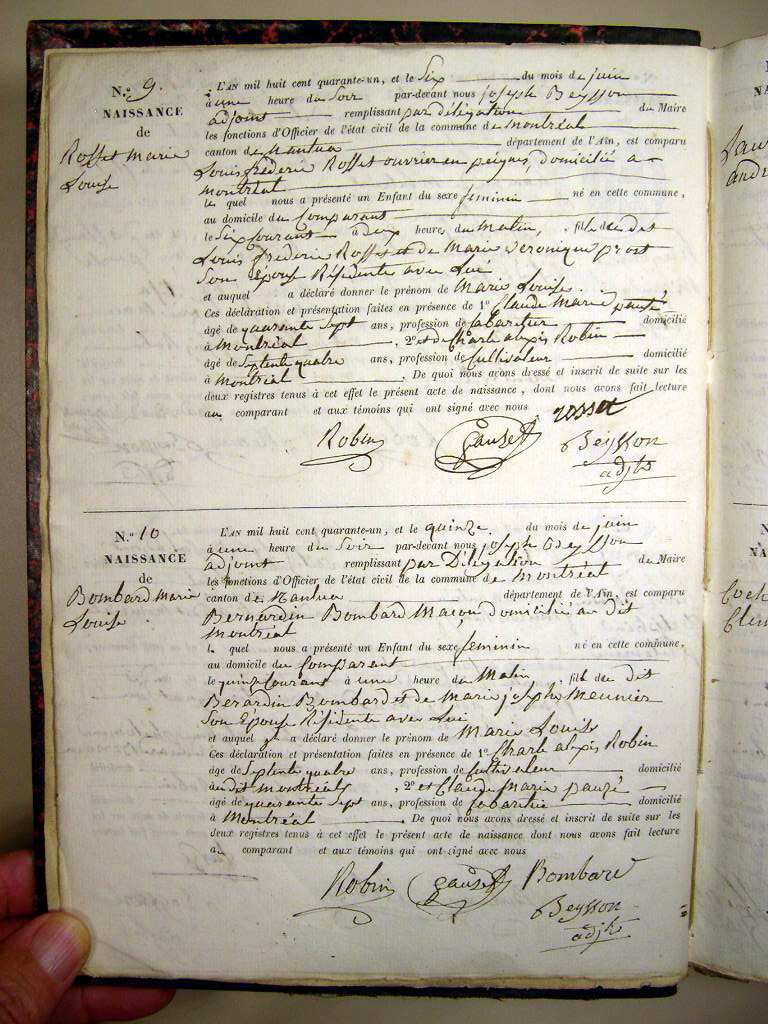 N.º 9.
NAISSANCE
de
Rosset Marie
Louise
L'AN mil huit cent quarante-un, et le Six du mois de juin
à une heure du Soir par-devant nous joseph Beysson
adjoint remplissant par délégation du Maire
les fonctions d'Officier de l'état civil de la commune de Montréal
canton de Nantua département de l'Ain, est comparu
Louis frederic Rosset ouvrier en peignes, domicilié a
Montréal
le quel nous a présenté un Enfant du sexe feminin né en cette commune,
au domicile du Comparant
le Six Courant à deux heure du Matin, fille du dit
Louis frederic Rosset et de Marie veronique prost
Son epouse Résidente avec Lui
et auquel a déclaré donner le prénom de Marie Louise.
Ces déclaration et présentation faites en présence de 1º Claude Marie
âgé de quarante Sept ans, profession de Cabaretier domicilié
à Montréal, 2º et de Charle alexis Robin
âgé de Septente quatre ans, profession de Cultivateur domicilié
à Montréal. De quoi nous avons dressé et inscrit de suite sur les
deux registres tenus à cet effet le présent acte de naissance, dont nous avons fait lecture
au comparant et aux témoins qui ont signé avec nous
rosset
Robin
Beysson
adjt
N.º 10
NAISSANCE
de
Bombard Marie
Louise
L'AN mil huit cent quarante-un, et le quinze du mois de juin
à une heure du Soir par-devant nous joseph Beysson
adjoint remplissant par Délégation du Maire
les fonctions d'Officier de l'état civil de la commune de Montréal
canton de Nantua département de l'Ain, est comparu
Bernardin Bombard Maçon domicilié au dit
Montréal
le quel nous a présenté un Enfant du sexe feminin né en cette commune,
au domicile du Comparant
le quinze Courant à une heure du Matin, fille du dit
Berardin Bombard et de Marie josephe Meunier
Son Epouse Résidente avec Lui
et auquel a déclaré donner le prénom de Marie Louise
Ces déclaration et présentation faites en présence de 1º Charle alexis Robin
âgé de Septente quatre ans, profession de Cultivateur domicilié
au dit Montréal, 2º et Claude Marie
âgé de quarante Sept ans, profession de Cabaretier domicilié
à Montréal. De quoi nous avons dressé et inscrit de suite sur les
deux registres tenus à cet effet le présent acte de naissance dont nous avons fait lecture
au comparant et aux témoins qui ont signé avec nous
Robin Bombard
Beysson
adjt